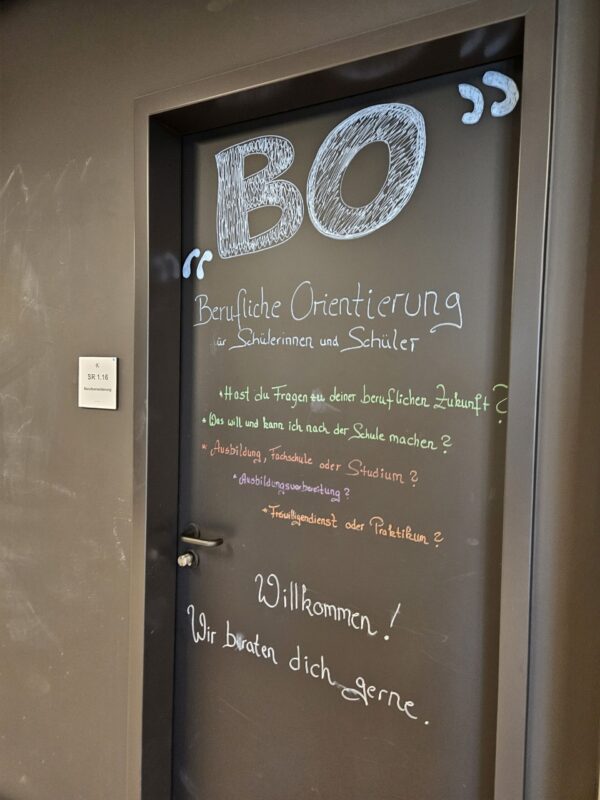 „BO”
Berufliche Orientierung
für Schülerinnen und Schüler
* Hast du Fragen zu deiner beruflichen Zukunft?
* Was will und kann ich nach der Schule machen?
* Ausbildung, Fachschule oder Studium?
* Ausbildungsvorbereitung?
* Freiwilligendienst oder Praktikum?
Willkommen!
Wir beraten dich gerne.
SR 1.16
Berufsorientierung